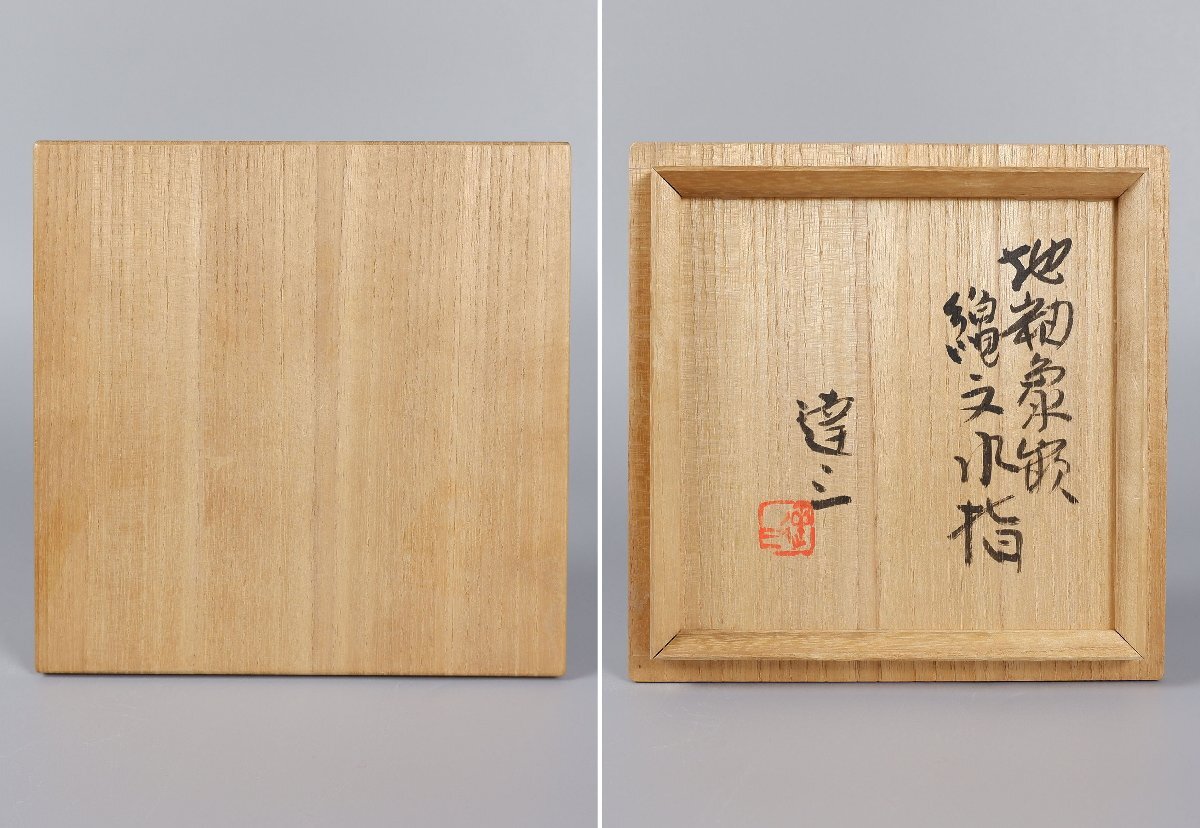 地釉象嵌
縄文水指
達三